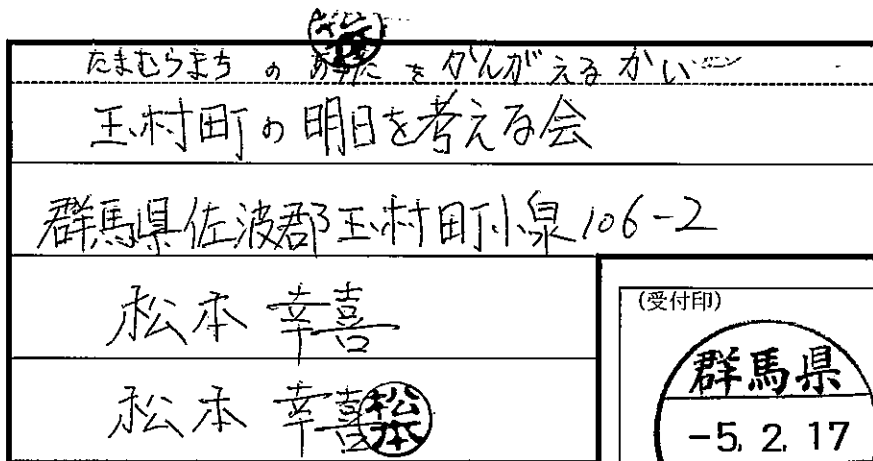 たまむらまち の あした を かんがえるかい
玉村町の明日を考える会
群馬県佐波郡玉村町小泉106-2
松本 幸喜
松本 幸喜
松本
(受付印)
群馬県
-5. 2. 17